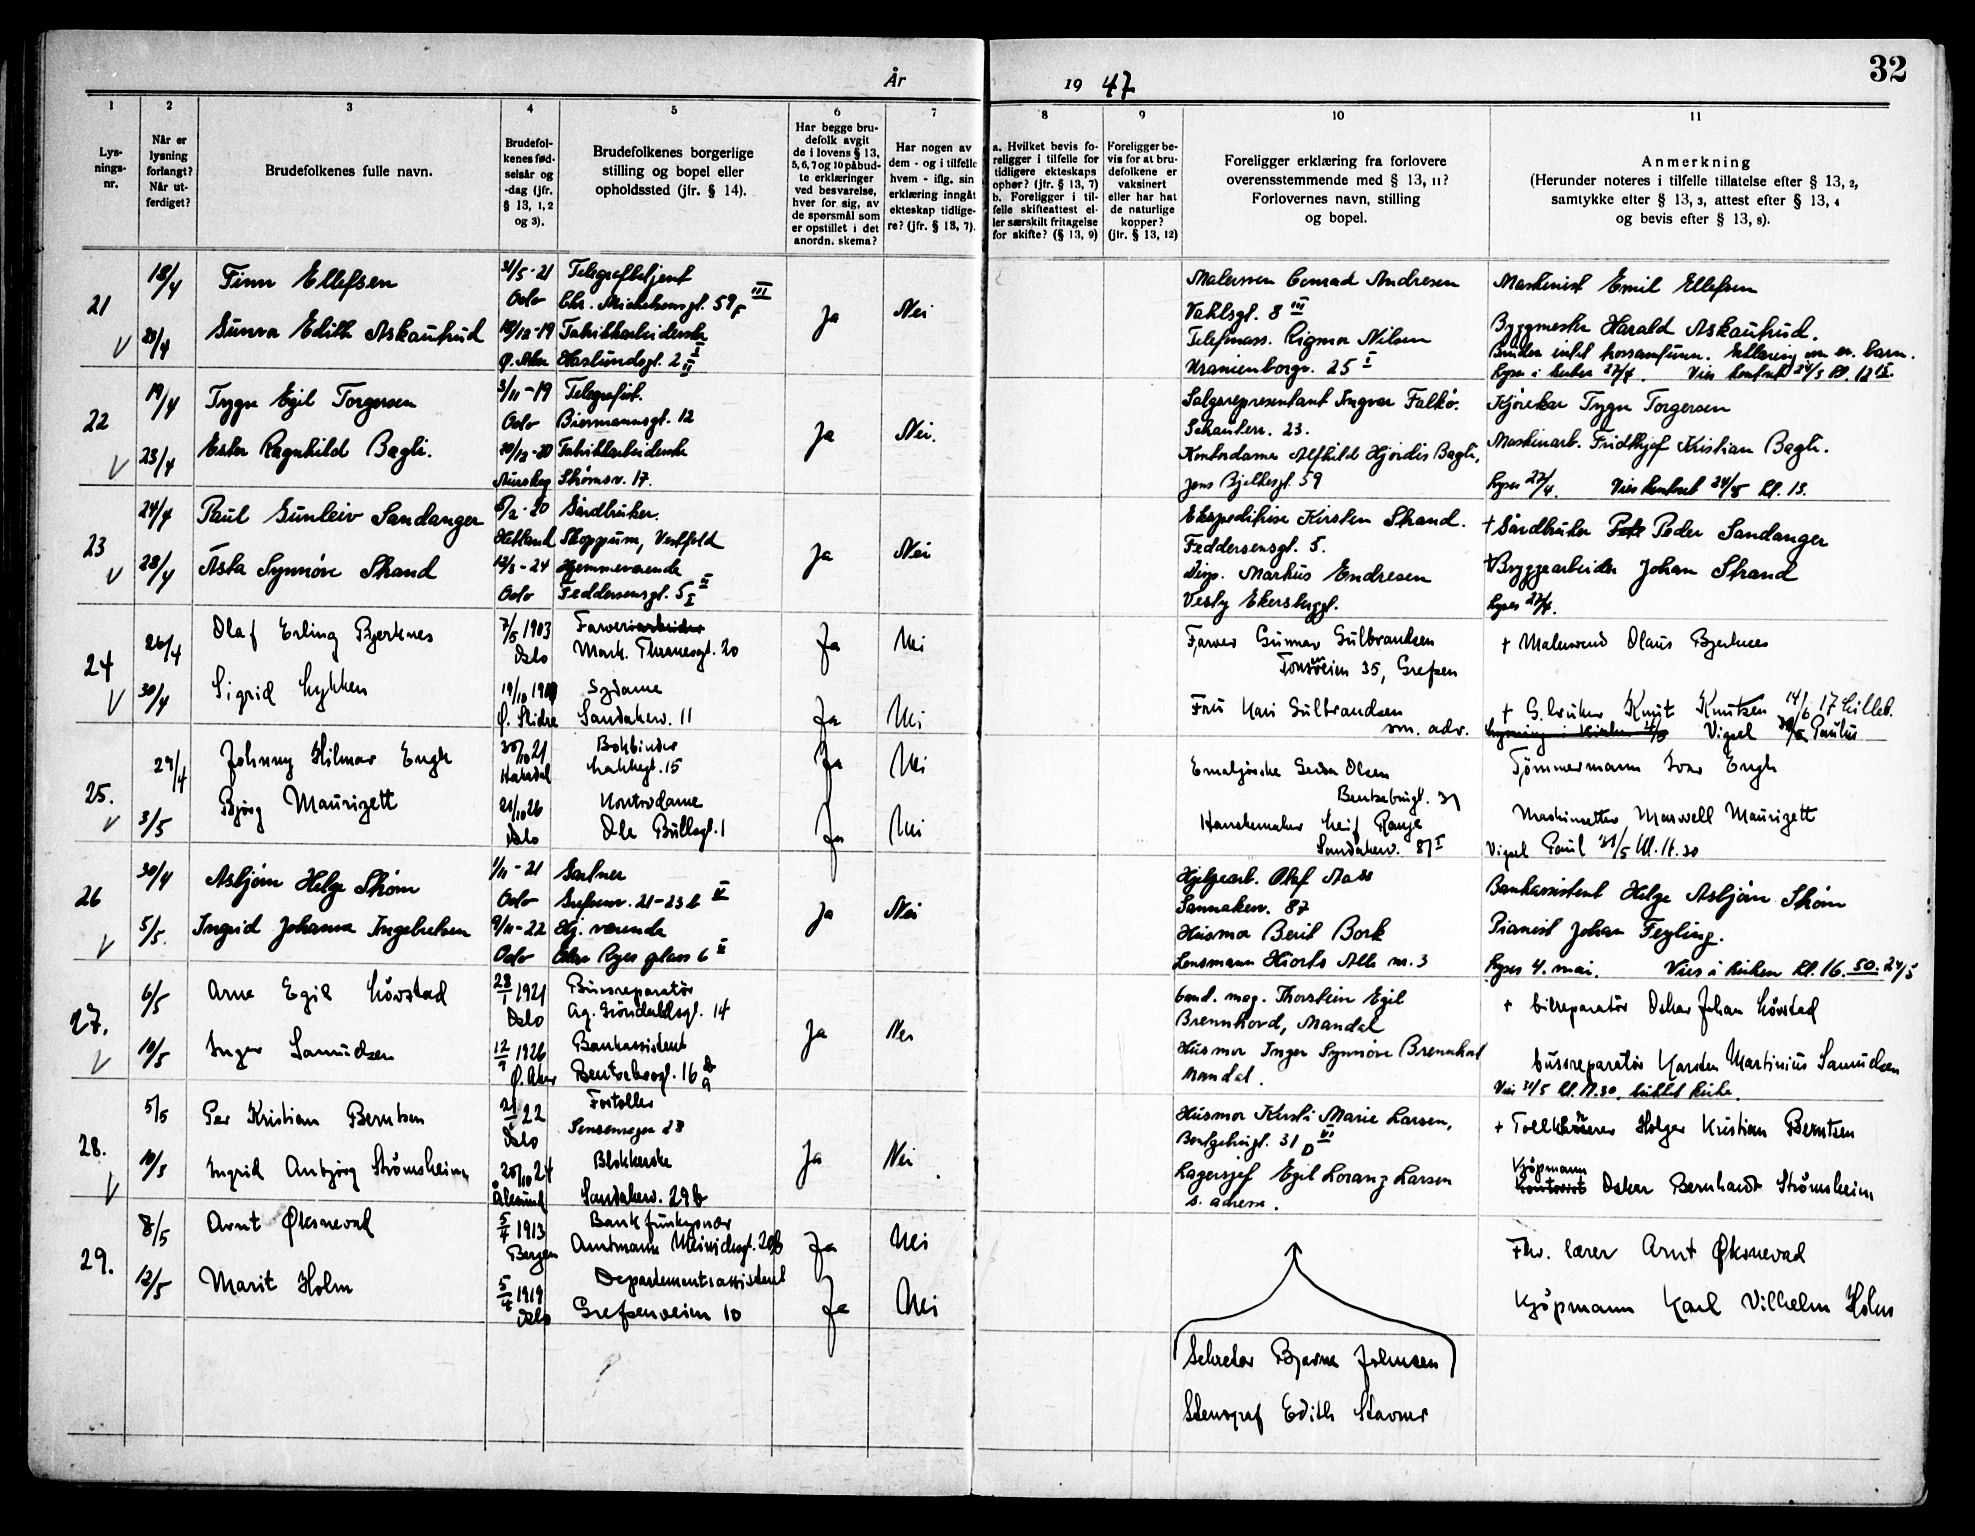 32
År 1947
1 2 3 4 5 6 7 8 9 10 11
Lys-
nings-
nr.
Når er
lysning
forlangt?
Når ut-
ferdiget?
Brudefolkenes fulle navn.
Brudefol-
kenes fød-
selsår og
-dag (jfr.
§ 13, 1, 2
og 3).
Brudefolkenes borgerlige
stilling og bopel eller
opholdssted (jfr. § 14).
Har begge bru-
defolk avgit
de i lovens § 13,
5, 6, 7 og 10 påbud-
te erklæringer
ved besvarelse,
hver for sig, av
de spørsmål som
er opstillet i det
anordn. skema?
Har nogen av
dem - og i tilfelle
hvem - iflg. sin
erklæring inngått
ekteskap tidlige-
re? (jfr. § 13, 7).
a. Hvilket bevis fo-
religger i tilfelle for
tidligere ekteskaps
ophør? (jfr. § 13, 7)
b. Foreligger i til-
felle skifteattest el-
ler særskilt fritagelse
for skifte? (§ 13, 9)
Foreligger be-
vis for at bru-
defolkene er
vaksinert
eller har hat
de naturlige
kopper?
(jfr. § 13, 12)
Foreligger erklæring fra forlovere
overensstemmende med § 13, 11?
Forlovernes navn, stilling
og bopel.
Anmerkning
(Herunder noteres i tilfelle tillatelse efter § 13, 2,
samtykke efter § 13, 3, attest efter § 13, 4
og bevis efter § 13, 8).
21 18/4 Finn Ellefsen 31/5-21 Telegrafbetjent Ja Nei Conrad Andresen Maskinist Emil Ellefsen
Oslo Chr. Michelsensgt. 59 III Vahlsgt. 8 III
23/4 Gunvor Edith Askautrud 18/12-19 Fabrikkarbeiderske Rigmor Nilsen Byggmester Harald Askautrud.
Ø. Aker Haslundsgt. 2 Uranienborgv. 25 I
22 19/4 Trygve Egil Torgersen 3/11-19 Telegrafist. Ja Nei. Salgsrepresentant Ingvar Falkö. Trygve Torgersen
Oslo Biermannsgt. 12 23.
23/4 Ester Ragnhild Bagli. 20/12-20 Fabrikkarbeiderske Kontordame Alfhild Hjördis Bagli, Maskinarb. Fridthjof Kristian Bagli.
Aurskog Strömsv. 17. Jens Bjelkesgt. 59 Lyses 27/4. Vies kontret 24/5 kl. 13.
23 24/4 Paul Gunleiv Sandanger 6/2-20 Gårdbruker. Ja Nei Ekspeditrise Kirsten Strand. + Gårdbruker Peder Sandanger
Skoppum, Vestfold Feddersensgt. 5.
28/4 Åsta Synnöve Strand 12/3-24 Hjemmeværende Markus Endresen + Bryggearbeider Johan Strand
Oslo Feddersensgt. 5 Vestby Lyses 27/4.
24 26/4 Olaf Erling Bjerknes 7/5 1903 Farver Ja Nei Farver Gunnar Gulbrandsen + Malersvend Olaus Bjerknes
Oslo Mark. Thranesgt. 20 Tonsenveien 35, Grefsen
30/4 Sigrid Lykken 19/10 Sydame Ja Nei Fru Kari Gulbrandsen + G.bruker Knut Knutsen
Ø. Slidre Sandakerv. 11 sm. adr. Vigsel Paulus
25. 29/4 Johnny Hilmar Engh 30/10 21 Bokbinder Ja Nei Olsen Tømmermann Ivar Engh
Hakadal Lakkegt. 15 Bentsebrugt. 31
3/5 Bjørg Maurizett 21/10 26 Kontordame Ja Nei Hanskemaker Leif Range Maskinsetter Maxwell Maurizett
Oslo Ole Bullsgt. 1 Sandakerv. 87 I Vigsel Paul 23/5 kl. 16.30
26 30/4 Asbjørn Helge Strøm 1/11-21 Gartner Ja Nei Hjelpearb. Olaf Aass Bankassistent Helge Asbjørn Strøm
Oslo Grefsenv. 21-23 b
5/5. Ingrid Johanne Ingebretsen 9/11-22 Hj. værende Husmor Berit Bork Pianist Johan Feyling.
Oslo Olav Ryes plass 6 Lensmann Hiorts Allé nr. 3 Lyses 4. mai. Vies i kirken kl. 16.50. 24/5
27. 6/5 Arne Egil Løvstad 28/1 1921 Bussreparatör Ja Nei Cand. mag. Thorstein Egil + bilreparatör Oskar Johan Løvstad
Oslo 14 Brennhovd, Mandal
10/5 Inger Samuelsen 12/9 1926 Bankassistent Husmor Inger Synnöve Brennhovd bussreparatör Karsten Martinius Samuelsen
Ø. Aker 16 Mandal. Vies 31/5 kl. 17.30.
28. 5/5 Per Kristian Berntsen 22 Ja Nei Husmor Kirsti Marie Larsen, + Holger Kristian Berntsen
Oslo Sensenveien 28
10/5 Ingrid Anbjørg Strömsheim 20/10 24 Blokkerske Lagersjef Egil Lorang Larsen Kjøpmann Oskar Bernhardt Strömsheim
Ålesund Sandakerv. 29 b s. adresse.
29. 8/5 Arnt Øksnevad 5/4 1913 Bankfunksjonær Ja Nei Fhv. lærer Arnt Øksnevad
Bergen Amtmann Meinichsgt. 20 b
12/5 Marit Holm 5/4 1919 Departementsassistent Ja Nei Kjøpmann Karl Vilhelm Holm
Oslo Grefsenveien 10
Sekretær Bjarne Johnsen
Stenograf Edith Stavner